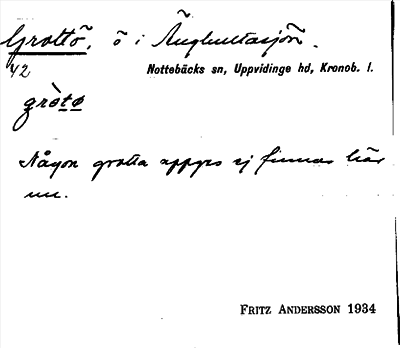 Grottö, ö i Änghultasjön.
42
Nottebäcks sn, Uppvidinge hd, Kronob. l.
gròtø
Någon grotta uppges ej finnas här
nu.
FRITZ ANDERSSON 1934